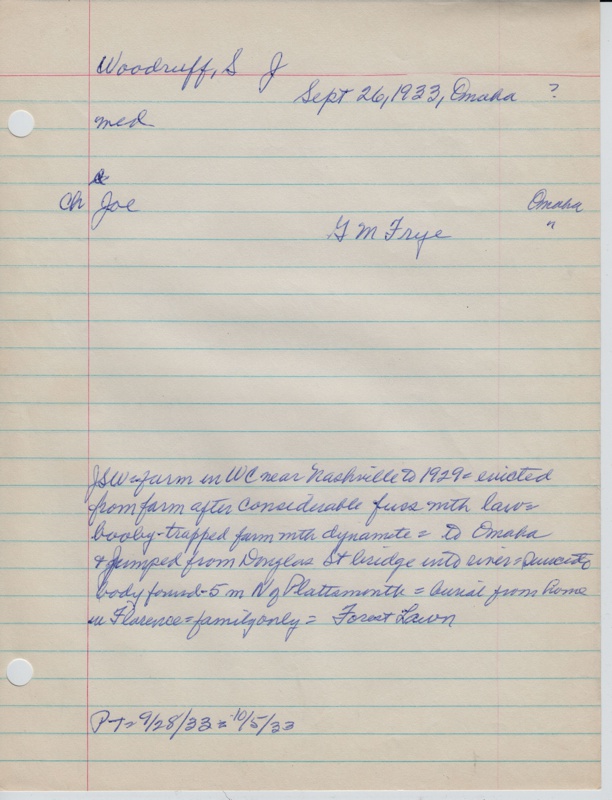 Woodruff, S J
Sept 26, 1933, Omaha ?
med
&
Ch Joe Omaha
G M Frye "
JSW = farm in WC near Nashville to 1929 = evicted
from farm after considerable fuss with law =
booby-trapped farm with dynamite = to Omaha
& jumped from Douglas St bridge into river =
body found - 5 m N of Plattsmouth = burial from home
in Florence = family only = Forest Lawn
P-T = 9/28/33 = 10/5/33